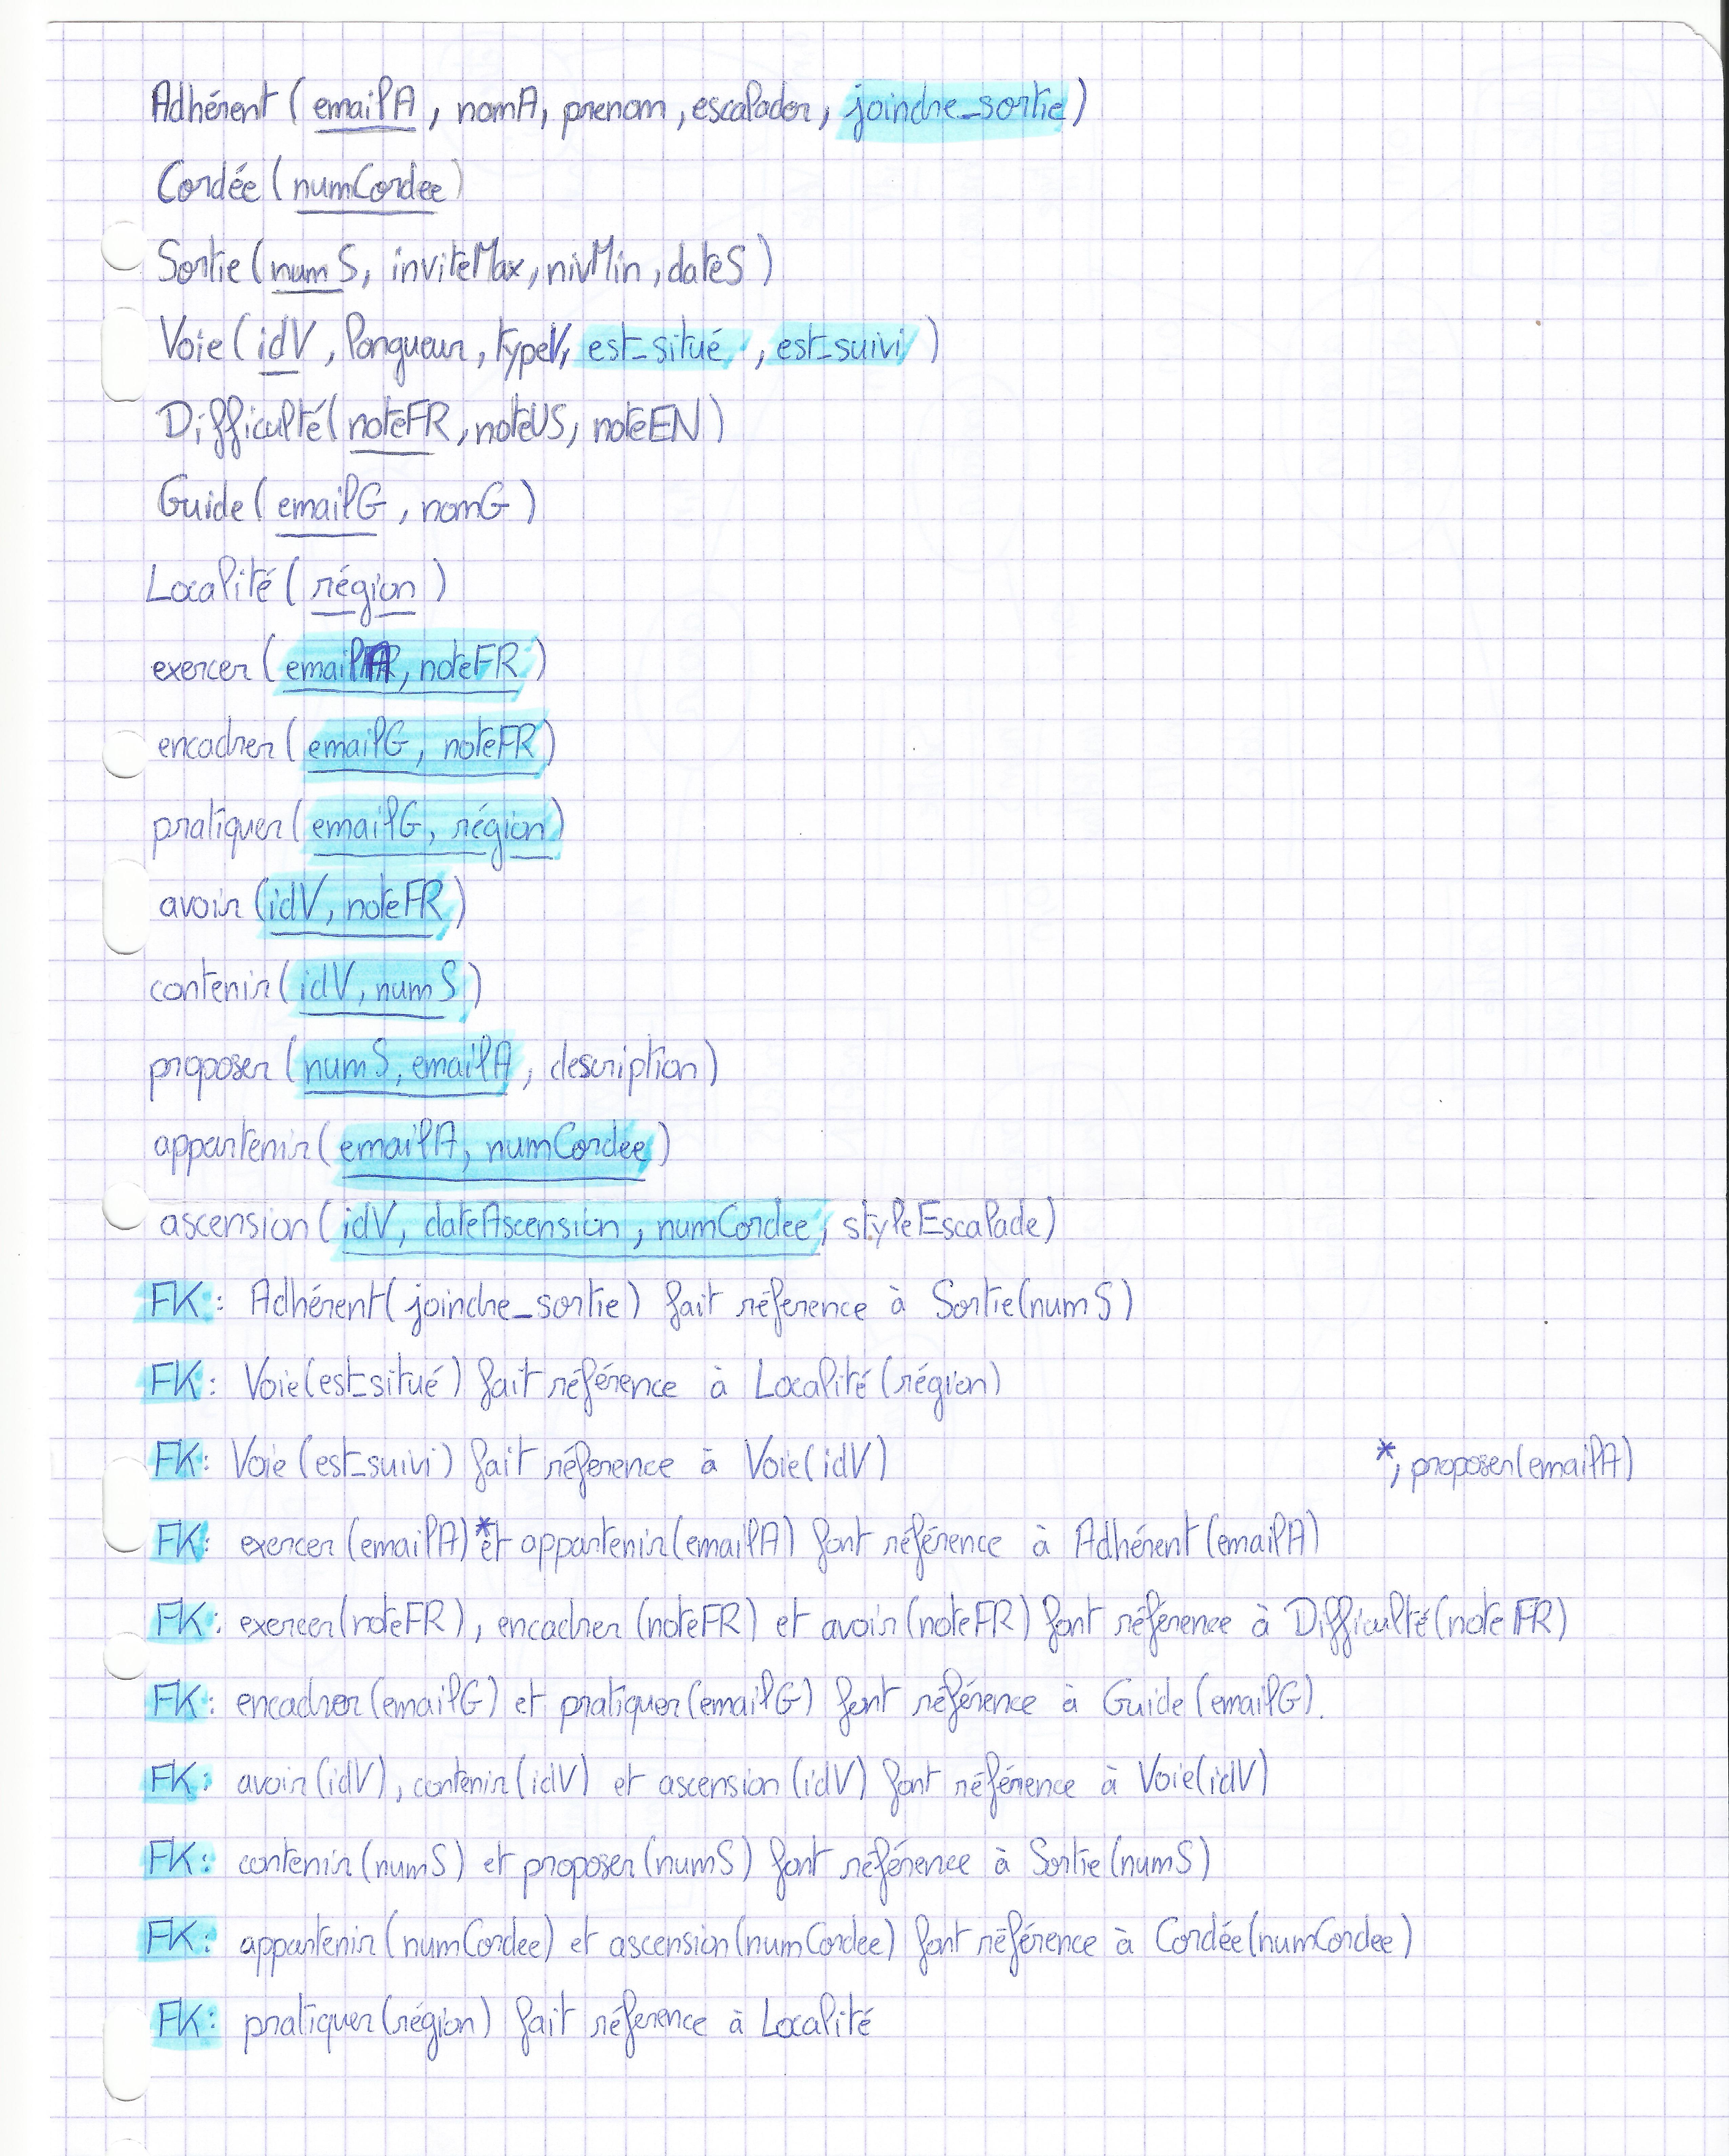 Adhérent (emailA, nomA, prenom, escalader, joindre_sortie)
Cordée (numCordee)
Sortie (numS, inviteMax, nivMin, dateS)
Voie (idV, longueur, typeV, est_situé, est_suivi)
Difficulté (noteFR, noteUS, noteEN)
Guide (emailG, nomG)
Localité (région)
exercer (emailA, noteFR)
encadrer (emailG, noteFR)
pratiquer (emailG, région)
avoir (idV, noteFR)
contenir (idV, numS)
proposer (numS, emailA, description)
appartenir (emailA, numCordée)
ascension (idV, dateAscension, numCordee, styleEscalade)
FK: Adhérent (joindre_sortie) fait réference à Sortie (numS)
FK: Voie (est_situé) fait référence à Localité (région)
FK: Voie (est_suivi) fait référence à Voie (idV)
*, proposer (emailA)
FK: exercer (emailA)* et appartenir (emailA) font référence à Adhérent (emailA)
FK: exercer (noteFR), encadrer (noteFR) et avoir (noteFR) font référence à Difficulté (noteFR)
FK: encadrer (emailG) et pratiquer (emailG) font référence à Guide (emailG).
FK: avoir (idV), contenir (idV) et ascension (idV) font référence à Voie (idV)
FK: contenir (numS) et proposer (numS) font référence à Sortie (numS)
FK: appartenir (numCordee) et ascension (numCordee) font référence à Cordée (numCordee)
FK: pratiquer (région) fait référence à Localité